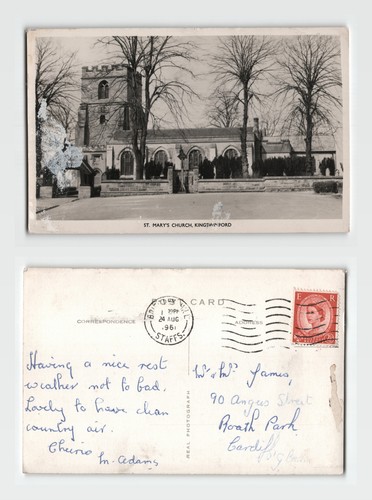 ST. MARY'S CHURCH, KINGSWINFORD
POST CARD
CORRESPONDENCE
ADDRESS
1 30PM
24 AUG
1961
STAFFS.
REAL PHOTOGRAPH
Having a nice rest
weather not to bad.
Lovely to have clean
country air.
Cheerio
M. Adams
Mr & Mrs James,
90 Angus Street
Roath Park
Cardiff